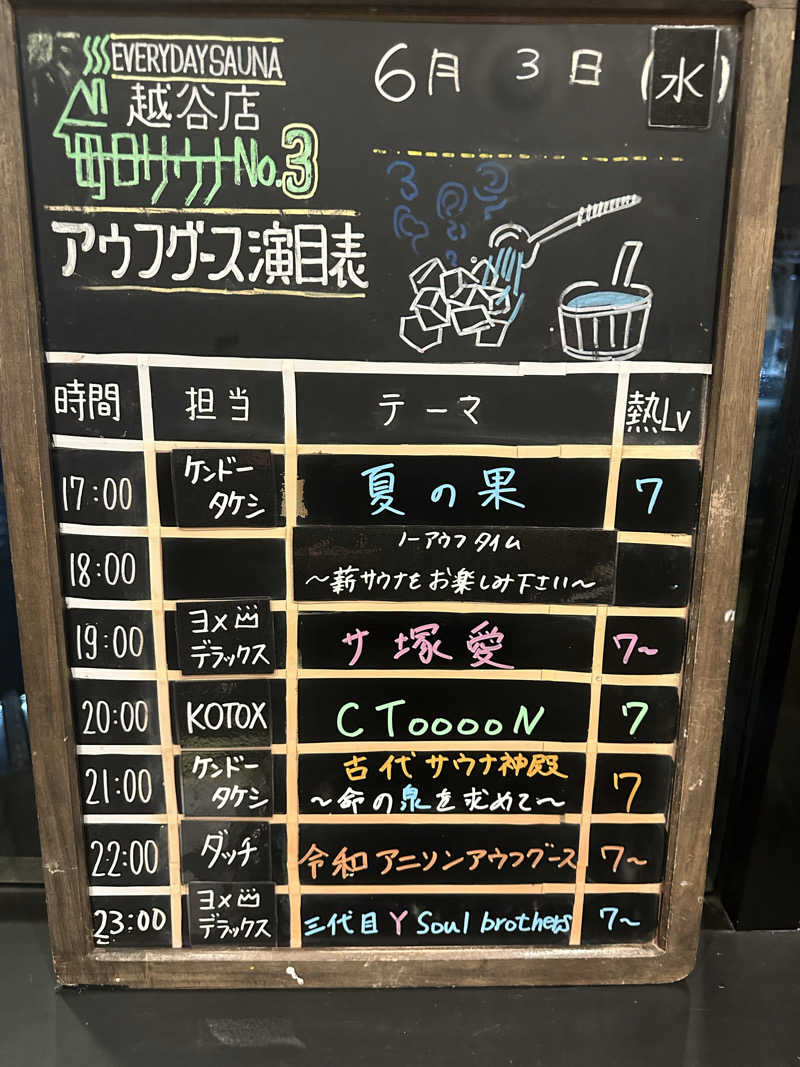 EVERYDAY SAUNA
越谷店
毎日サウナ No.3
アウフグース演目表
6月 3日 (水)
時間 担当 テーマ 熱Lv
17:00 ケンドー タケシ 夏の果 7
18:00 ノーアウフタイム
〜薪サウナをお楽しみ下さい〜
19:00 ヨメ デラックス サ塚愛 7〜
20:00 KOTOX CTooooN 7
21:00 ケンドー タケシ 古代サウナ神殿 7
〜命の泉を求めて〜
22:00 ダッチ 令和アニソンアウフグース 7〜
23:00 ヨメ デラックス 三代目 Y Soul brothers 7〜